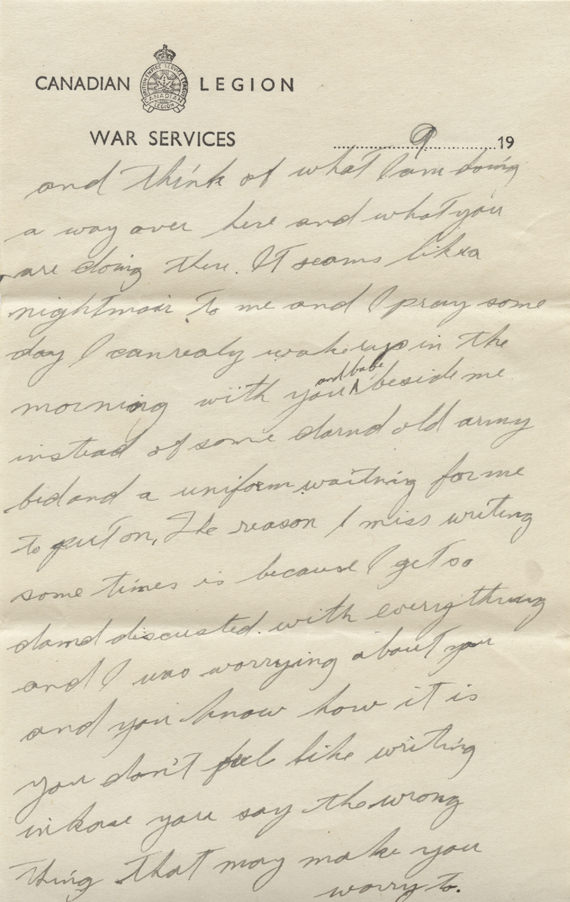 CANADIAN LEGION
WAR SERVICES
9 19
and think of what I am doing
a way over here and what you
are doing there. It seams like a
nightmair to me and I pray some
day I can realy wake up in the
and babe
morning with you beside me
instead of some darnd old army
bid and a uniform waitning for me
to put on, The reason I miss writing
some times is because I get so
damd discusted with everything
and I was worrying about you
and you know how it is
you don't feel like writing
inkase you say the wrong
thing that may make you
worry to.